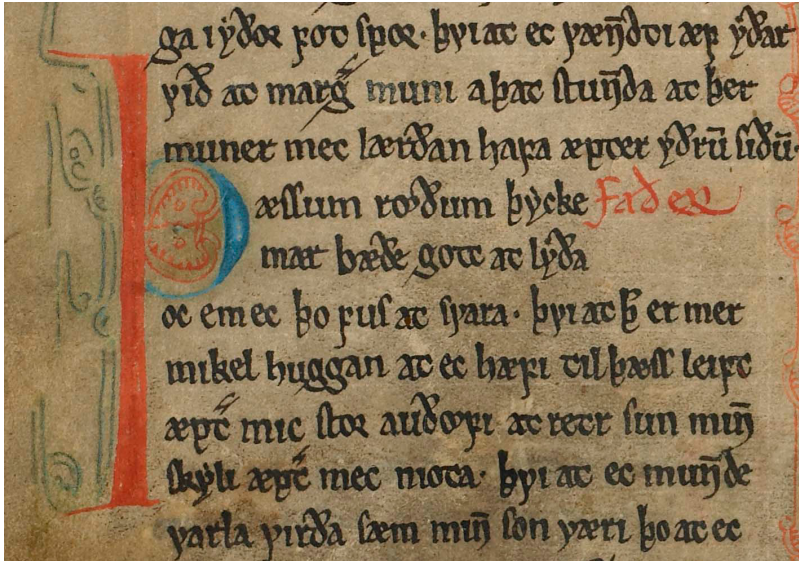 ga i ẏðoꝛ ꝼot spoꝛ· þvi at ec væn̄dti æꝼ ẏðar
við at marg̃ muni a þat stun̄da at þer
muner mec lærðan haꝼa æpter ẏðrū siðū·
Þæssum rœðum þẏcke faðer
mær bæðe gott at lẏða
oc em ec þo ꝼus at svara· þvi at þ̄ er mer
mikel huggan at ec hæꝼi til þæss leiꝼt
æpt̃ mic stoꝛ auðœꝼi at retr sun min̄
skẏli æpt̃ mec niota· þvi at ec mun̄de
varla virða sæm min̄ son væri þo at ec